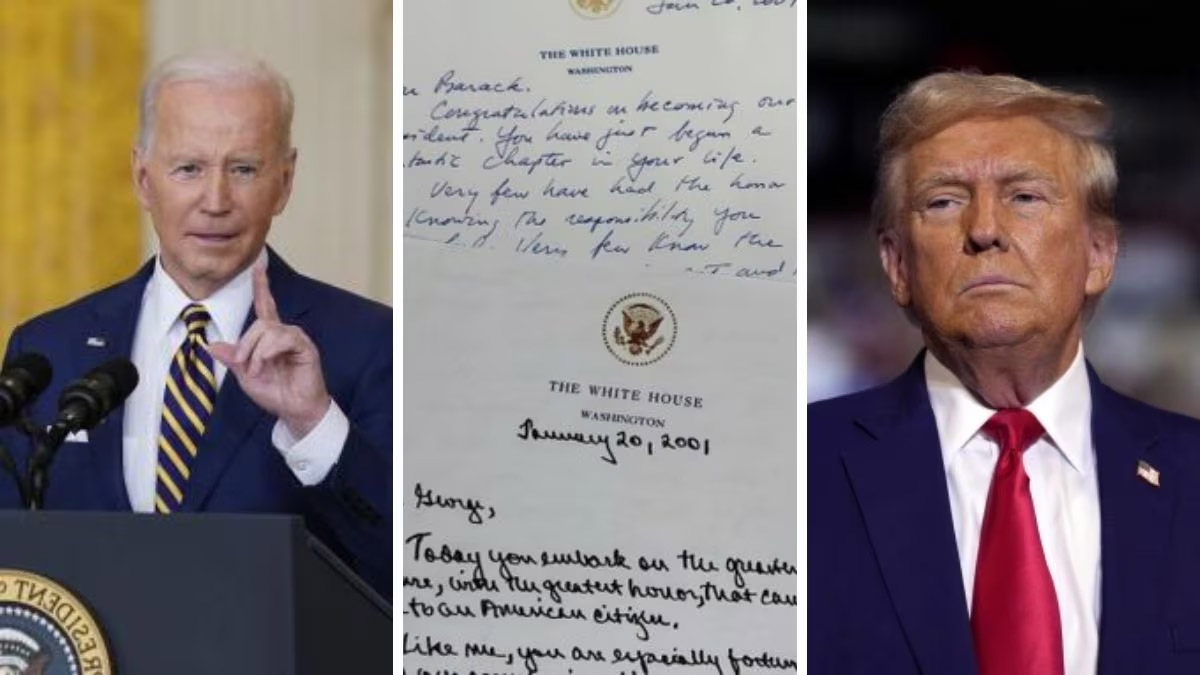 THE WHITE HOUSE
WASHINGTON
Barack.
Congratulations on becoming our
sident. You have just begun a
tastic Chapter in your life.
Very few have had the honor
Knowing the responsibility you
Very few know the
and
THE WHITE HOUSE
WASHINGTON
January 20, 2001
George,
Today you embark on the greatest
ure, with the greatest honor, that can
to an American citizen.
Like me, you are especially fortun
PRESIDENT